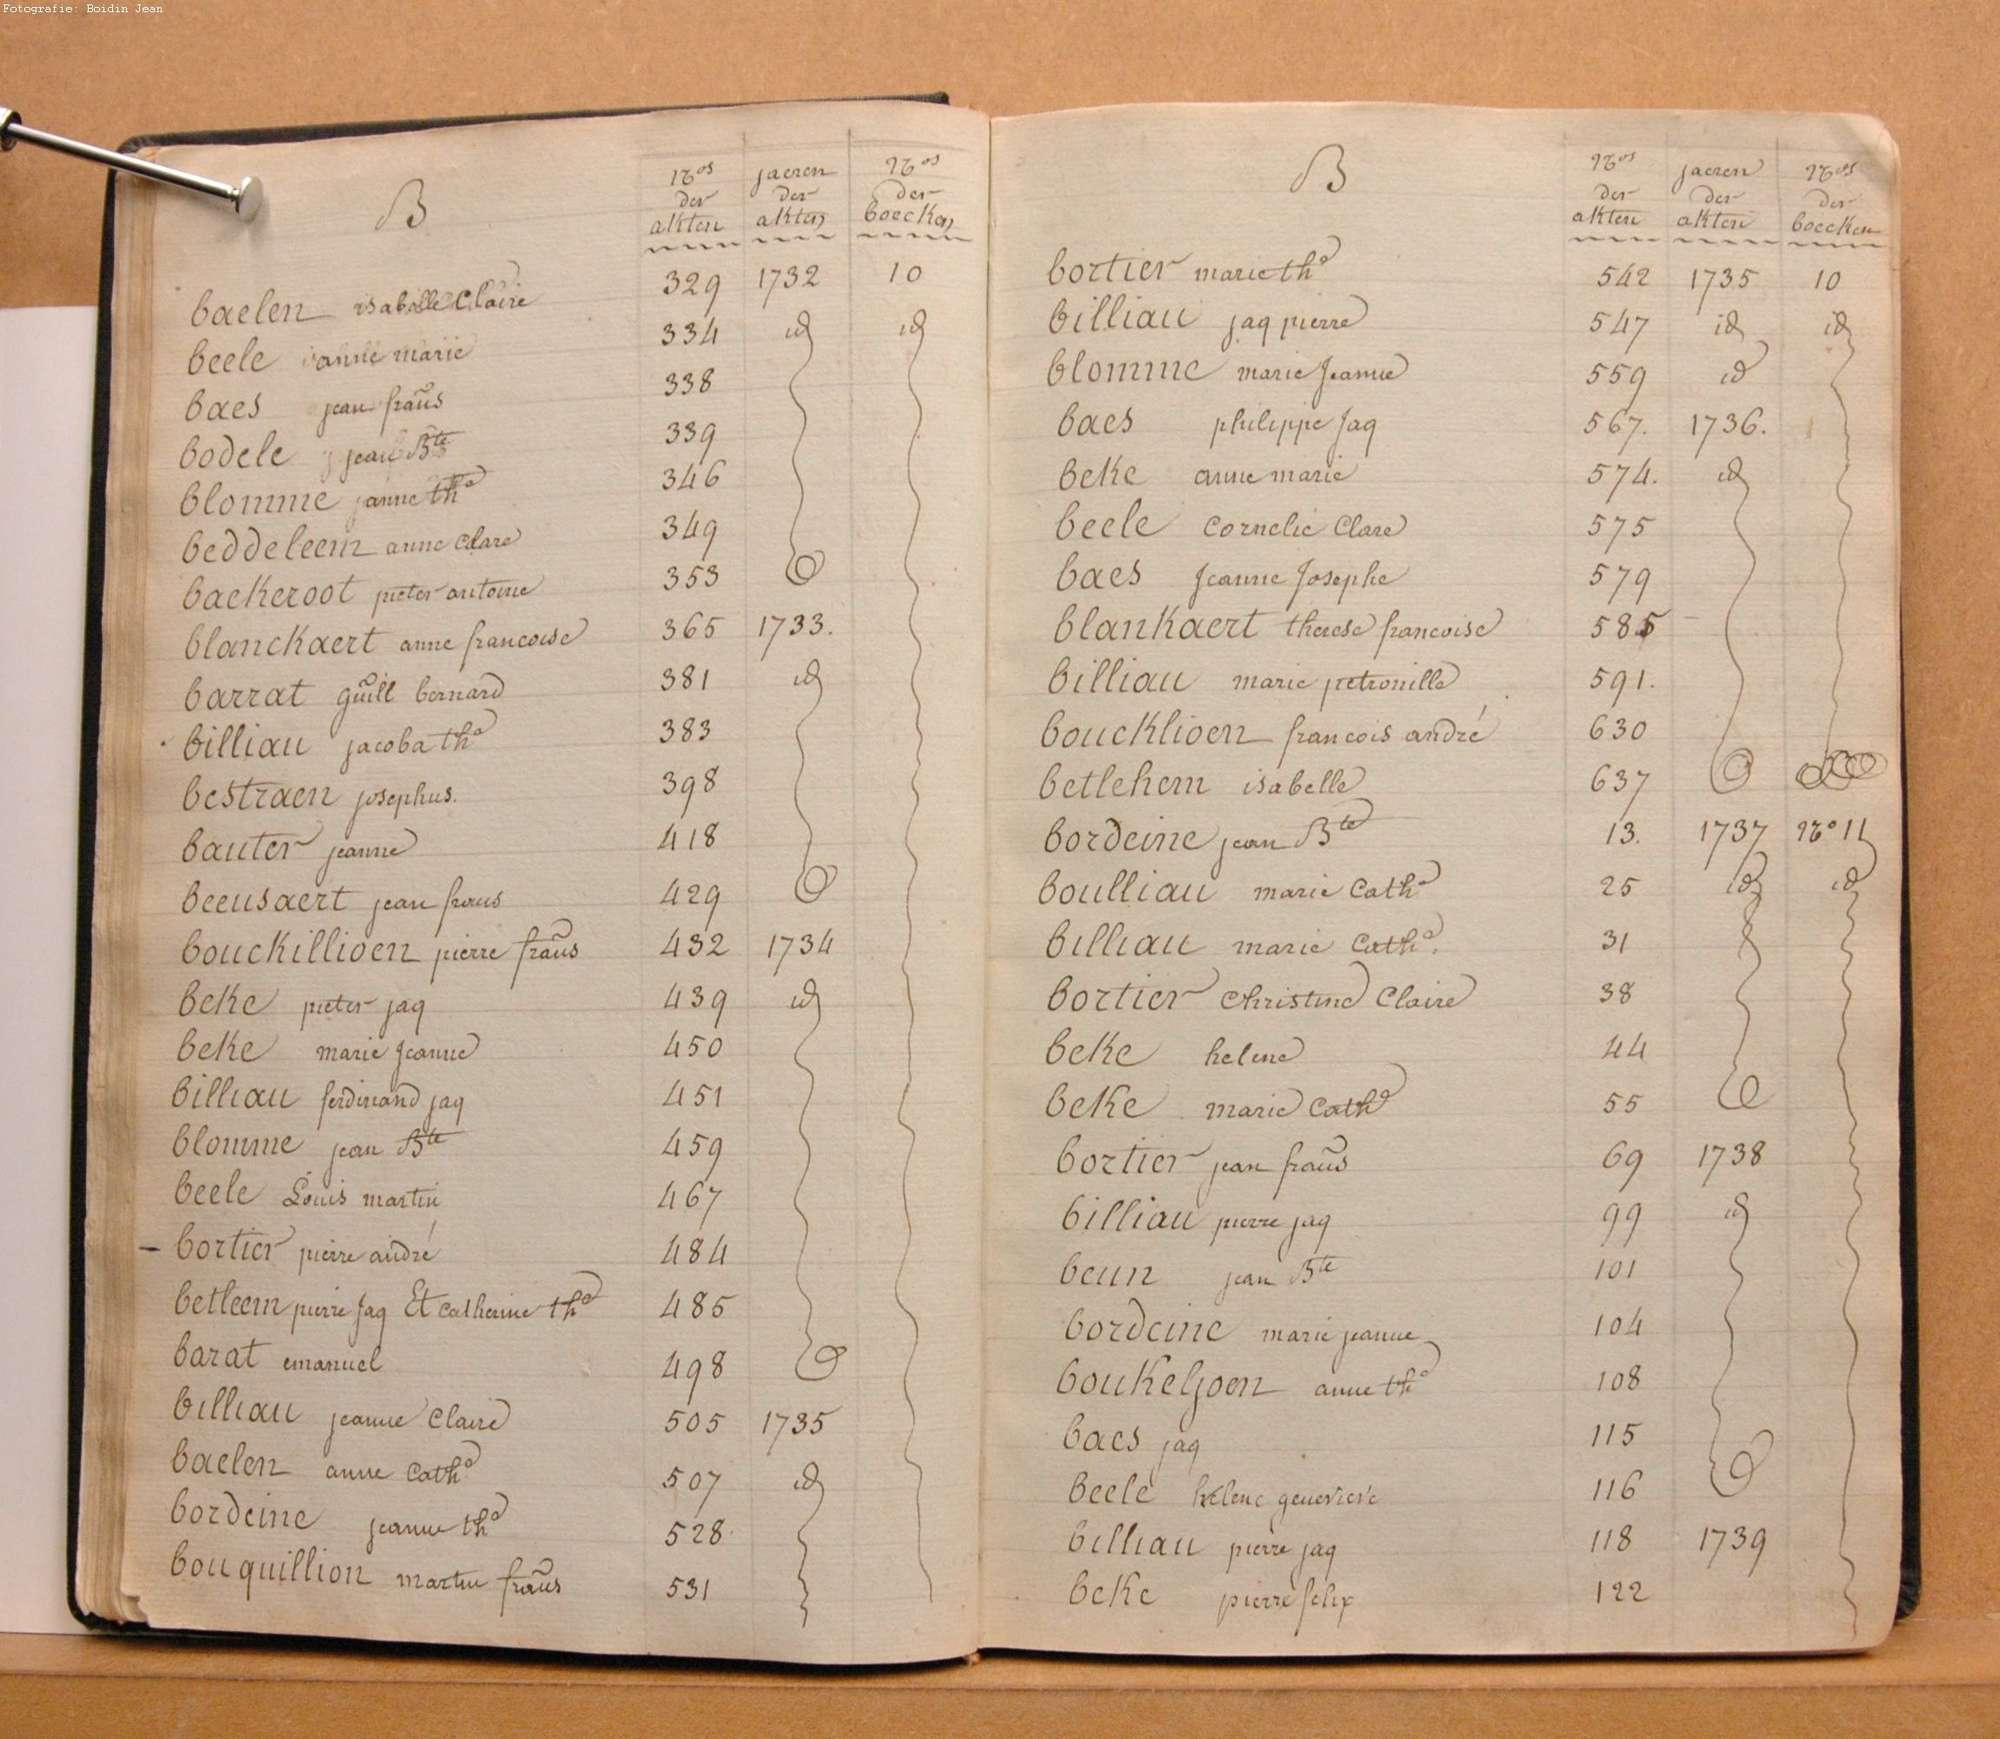 Fotografie: Boidin Jean
B
Nos der akten
jaeren der akten
Nos der boecken
baelen isabelle Claire 329 1732 10
beele anne marie 334 id id
baes jean frans 338
bodele jean Bte 339
blomme janne the 346
beddeleem anne Clare 349
baekeroot pieter antoine 353
blanckaert anne francoise 365 1733.
barrat guill bernard 381 id
billiau jacoba the 383
bestraen josephus. 398
bauter jeanne 418
beeusaert jean frans 429
bouckillioen pierre frans 432 1734
beke pieter jaq 439 id
beke marie Jeanne 450
billiau ferdinand jaq 451
blomme jean Bte 459
beele Louis martin 467
- bortier pierre andré 484
betleem pierre Jaq Et catherine the 485
barat emanuel 498
billiau jeanne Claire 505 1735
baelen anne Cathe 507 id
bordeine jeanne the 528
bouquillion martin frans 531
B
Nos der akten
jaeren der akten
Nos der boecken
bortier marie the 542 1735 10
billiau jaq pierre 547 id id
blomme marie Jeanne 559 id
baes philippe Jaq 567. 1736.
beke anne marie 574. id
beele Cornelie Clare 575
baes Jeanne Josephe 579
blankaert therese francoise 585
billiau marie petronille 591.
boucklioen francois andré 630
betlehem isabelle 637
bordeine jean Bte 13. 1737 No 11
boulliau marie Cathe 25 id id
billiau marie Cathe. 31
bortier Christine Claire 38
beke helene 44
beke marie Cathe 55
bortier jean frans 69 1738
billiau pierre jaq 99 id
beun jean Bte 101
bordeine marie jeanne 104
boukeljoen anne the 108
baes jaq 115
beele helene genevieve 116
billiau pierre jaq 118 1739
beke pierre felix 122